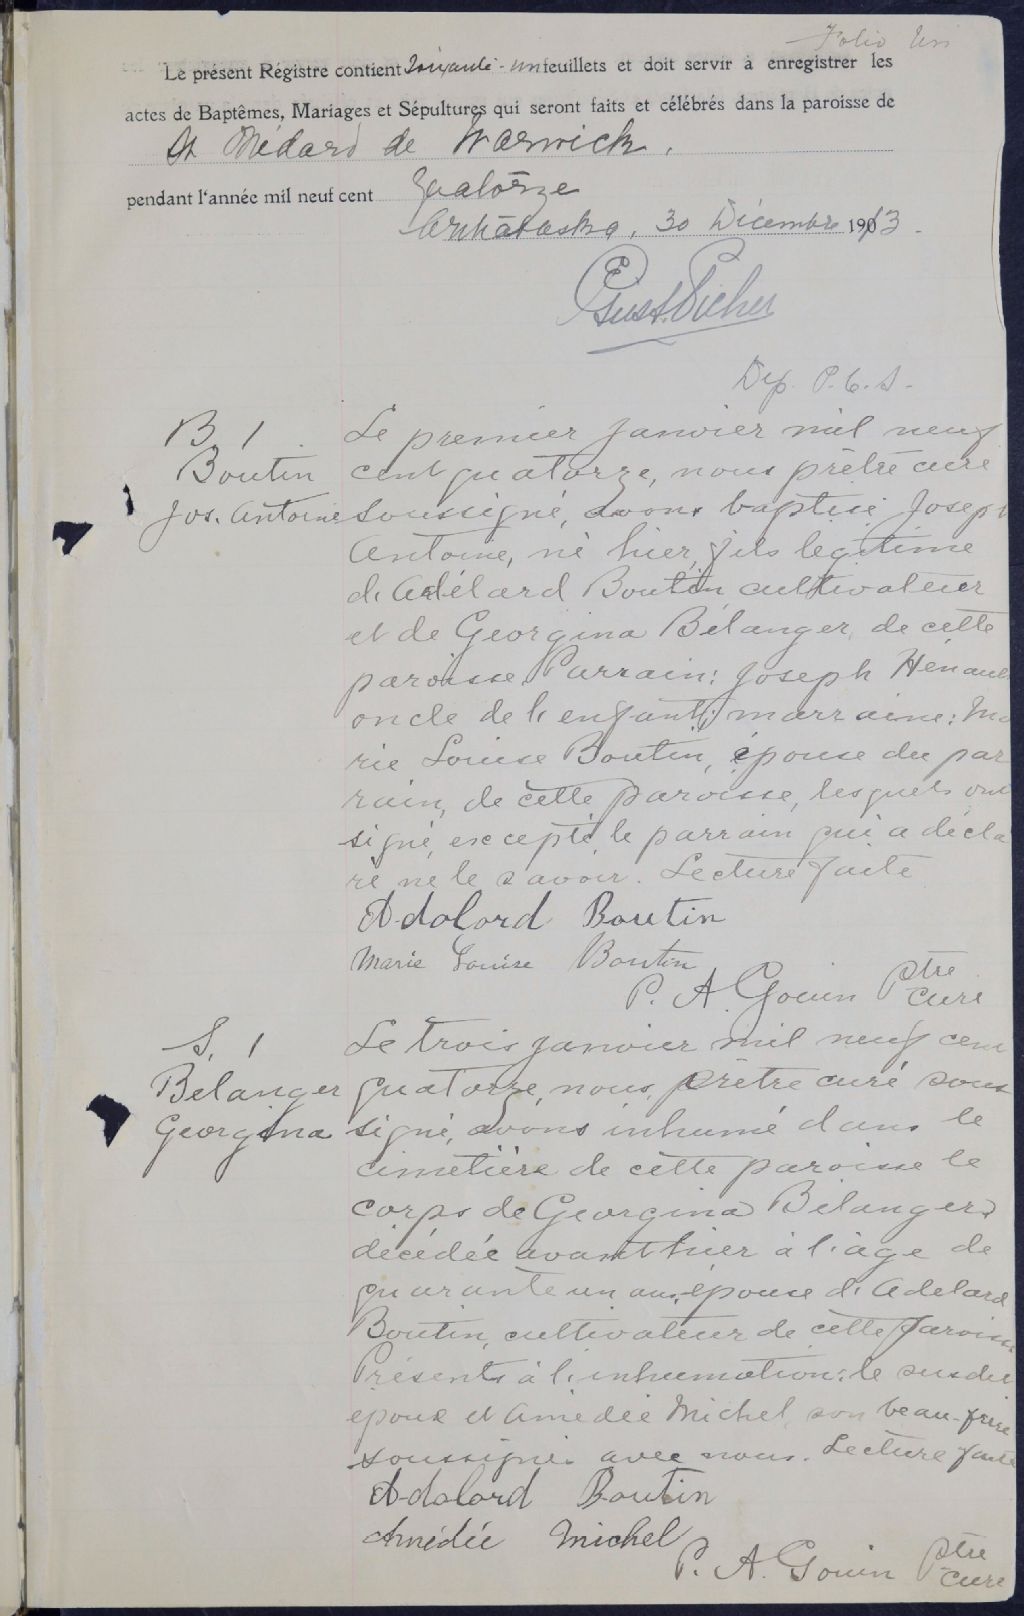 Folio Un
Le présent Régistre contient soixante-un feuillets et doit servir à enregistrer les
actes de Baptêmes, Mariages et Sépultures qui seront faits et célébrés dans la paroisse de
St Médard de Warwick.
pendant l'année mil neuf cent quatorze
Arthabaska, 30 Décembre 1913.
Gust. Picher
Dep. P.C.S.
B. 1
Boutin
Jos. Antoine
Le premier janvier mil neuf
cent quatorze, nous prêtre curé
soussigné, avons baptisé Joseph
Antoine, né hier, fils légitime
d'Adélard Boutin cultivateur
et de Georgina Bélanger de cette
paroisse. Parrain: Joseph Hénault
oncle de l'enfant; marraine: Ma
rie Louise Boutin, épouse du par
rain, de cette paroisse, lesquels ont
signé, excepté le parrain qui a décla
ré ne le savoir. Lecture faite
Adolord Boutin
Marie Louise Boutin
P. A. Gouin Ptre
curé
S. 1
Bélanger
Georgina
Le trois janvier mil neuf cent
quatorze, nous, prêtre curé sous
signé, avons inhumé dans le
cimetière de cette paroisse le
corps de Georgina Bélanger,
décédée avant hier à l'âge de
quarante un ans, épouse d'Adelard
Boutin, cultivateur de cette paroisse
Présents à l'inhumation: le susdit
époux et Amédée Michel, son beau-frère
soussignés avec nous. Lecture faite
Adolord Boutin
Amédée Michel
P. A. Gouin Ptre
curé